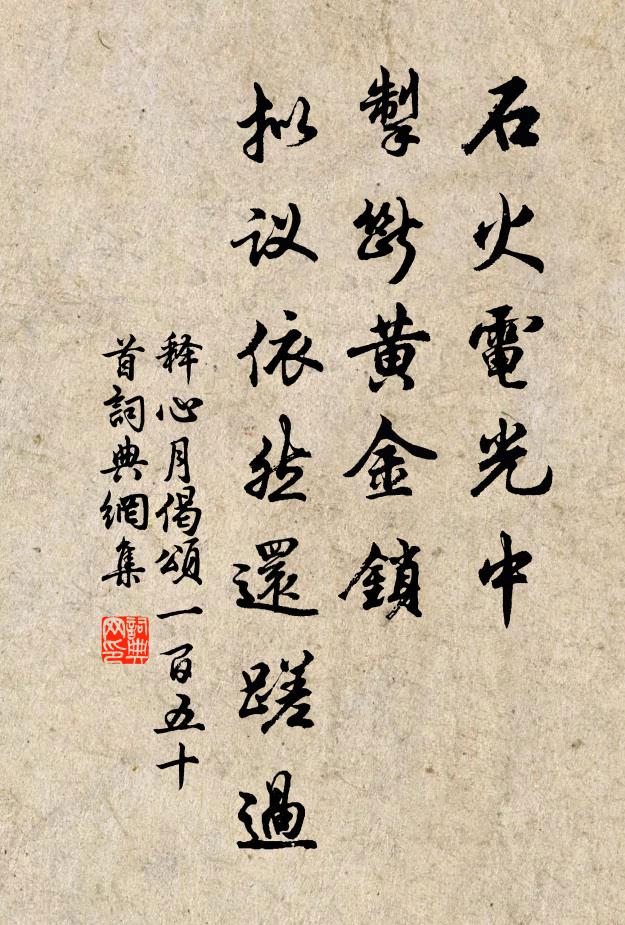 石火電光中
掣斷黄金鎖
拟议依然還蹉過
释心月偈頌一百五十
首詞典網集
詞典
网印